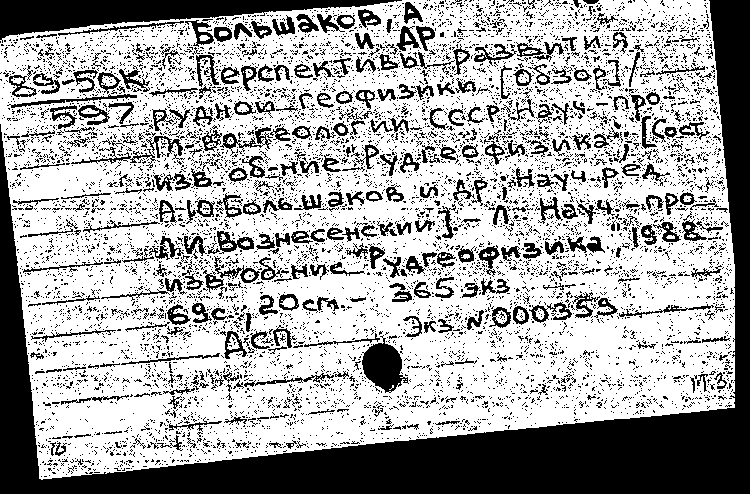 Большаков, А
и др.
89-50К
597
Перспективы развития
рудной геофизики [Обзор] /
М-во геологии СССР, Науч.-про-
изв. об-ние "Рудгеофизика"; [Сост.
А.Ю. Большаков и др.; Науч. ред.
А.И. Вознесенский]. - Л.: Науч.-про-
изв. об-ние "Рудгеофизика", 1988 -
69 с., 20 см. - 365 экз
ДСП Экз N 000359